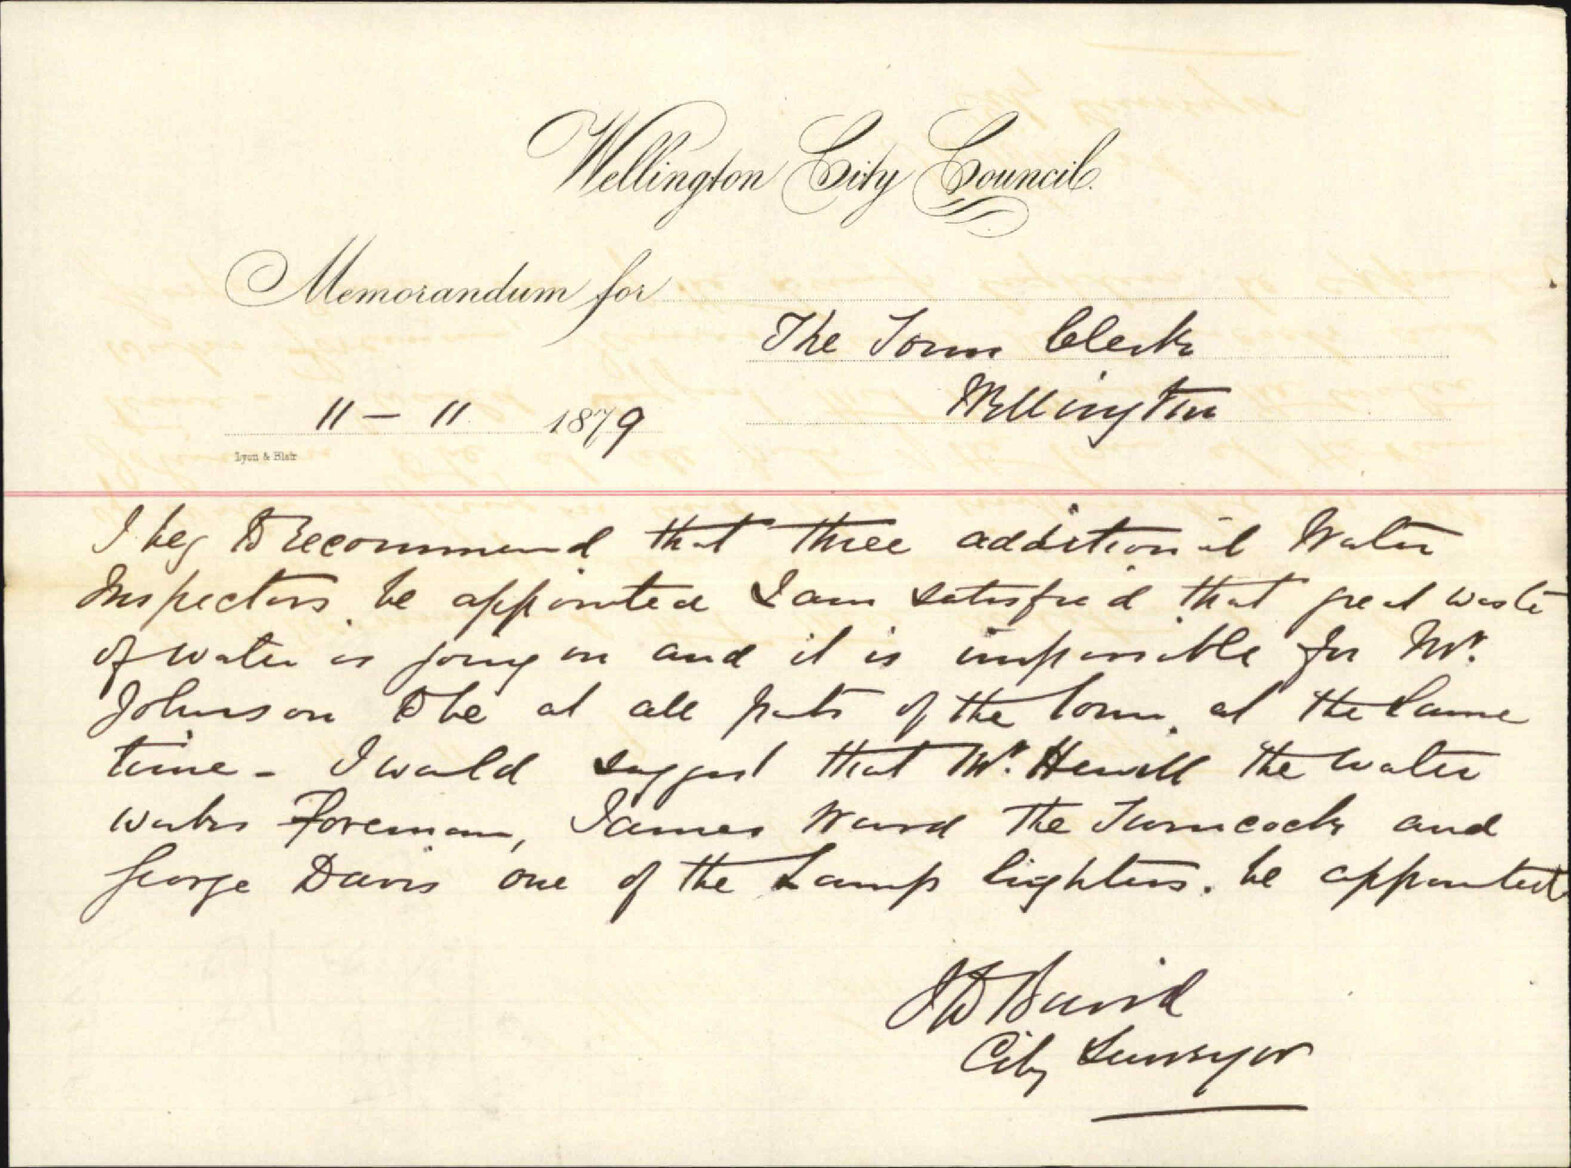 Wellington City Council.
Memorandum for
The Town Clerk
Wellington
11 - 11 1879
Lyon & Blair
I beg to recommend that three additional Water
Inspectors be appointed I am satisfied that great waste
of water is going on and it is impossible for Mr.
Johnson to be at all parts of the town at the same
time - I would suggest that Mr. Hewitt the water
works Foreman, James Ward the Turncock and
George Davis one of the Lamp lighters. be appointed
J D Baird
City Surveyor